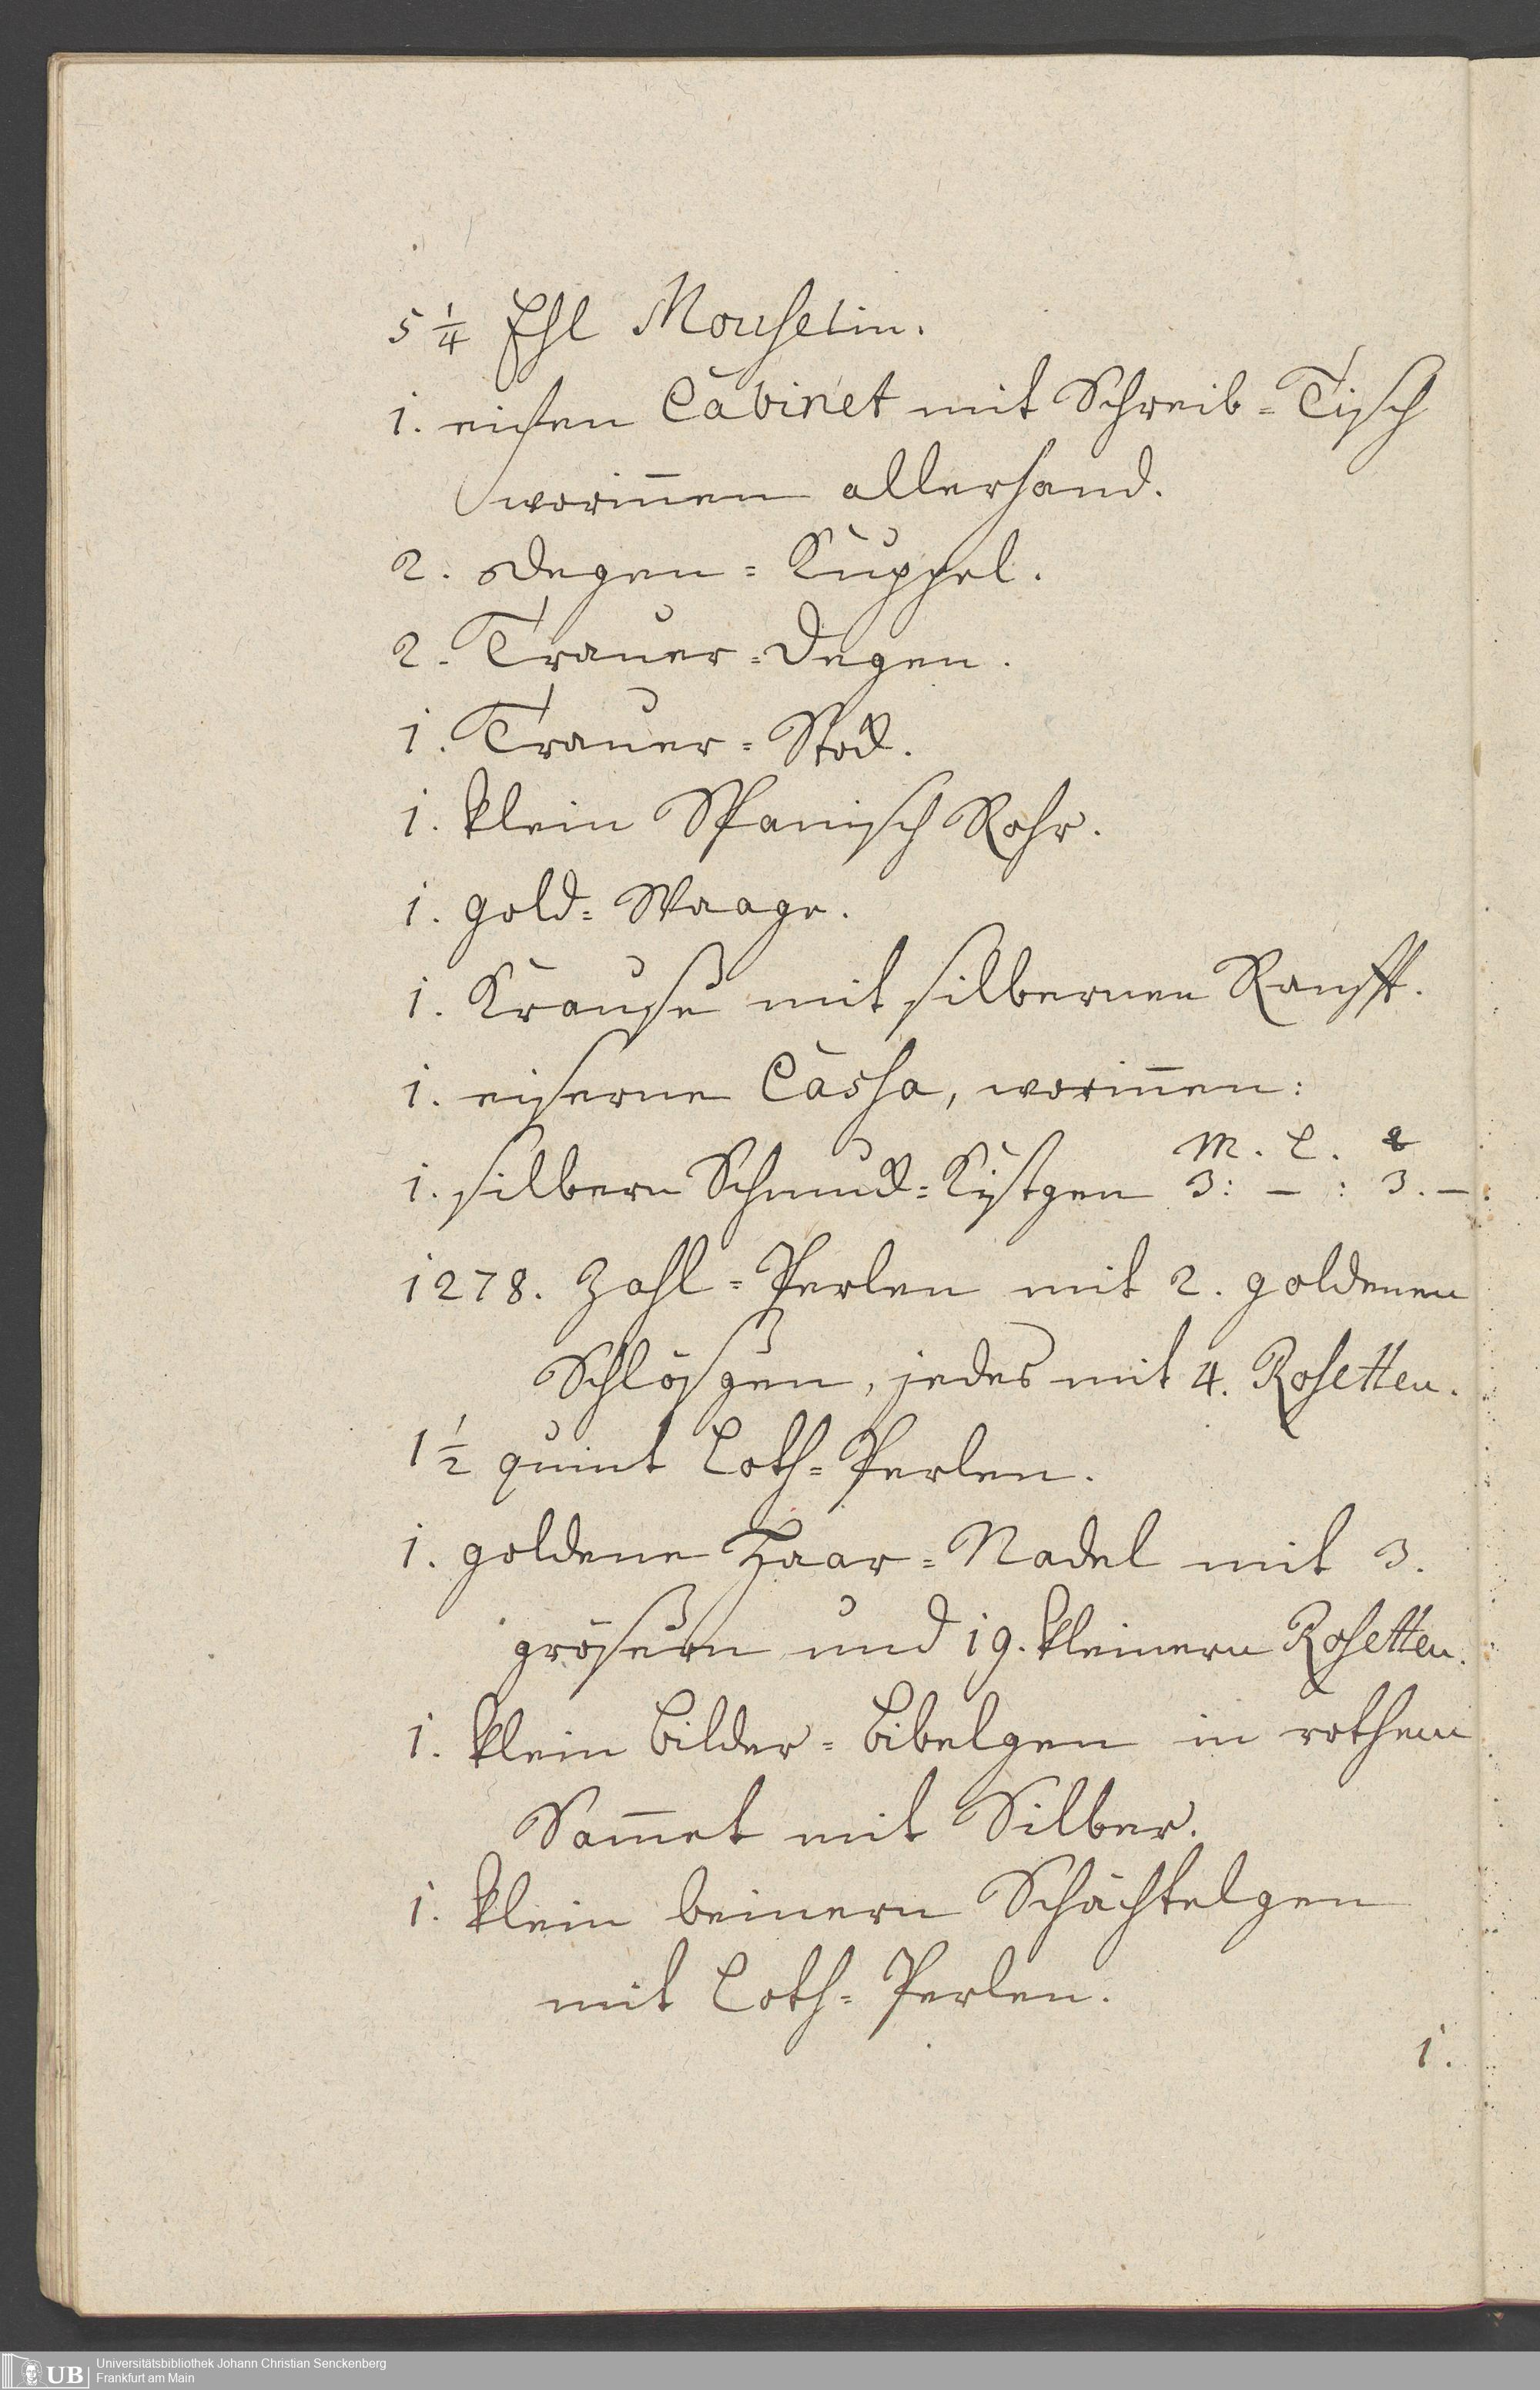 5 1/4 Ehl Mouselin.
1. eichen Cabinet mit Schreib=Tisch
worin̄en allerhand.
2. Degen=Kuppel.
2. Trauer=Degen.
1. Trauer=Stock.
1. klein Spanisch Rohr.
1. Gold=Waage.
1. Krauße mit silbernen Ranfft.
1. eiserne Cassa, worin̄en:
M. L. q
1. silbern Schmuck=Kistgen 3: – : 3. –.
1278. Zahl=Perlen mit 2. goldenen
Schlößgen, jedes mit 4. Rosetten.
1 1/2 quint Loth=Perlen.
1. goldene Haar=Nadel mit 3.
größern und 19. kleinern Rosetten.
1. klein Bilder=Bibelgen in rothem
Sam̄et mit Silber.
1. klein beinern Schächtelgen
mit Loth=Perlen.
1.
UB Universitätsbibliothek Johann Christian Senckenberg
Frankfurt am Main